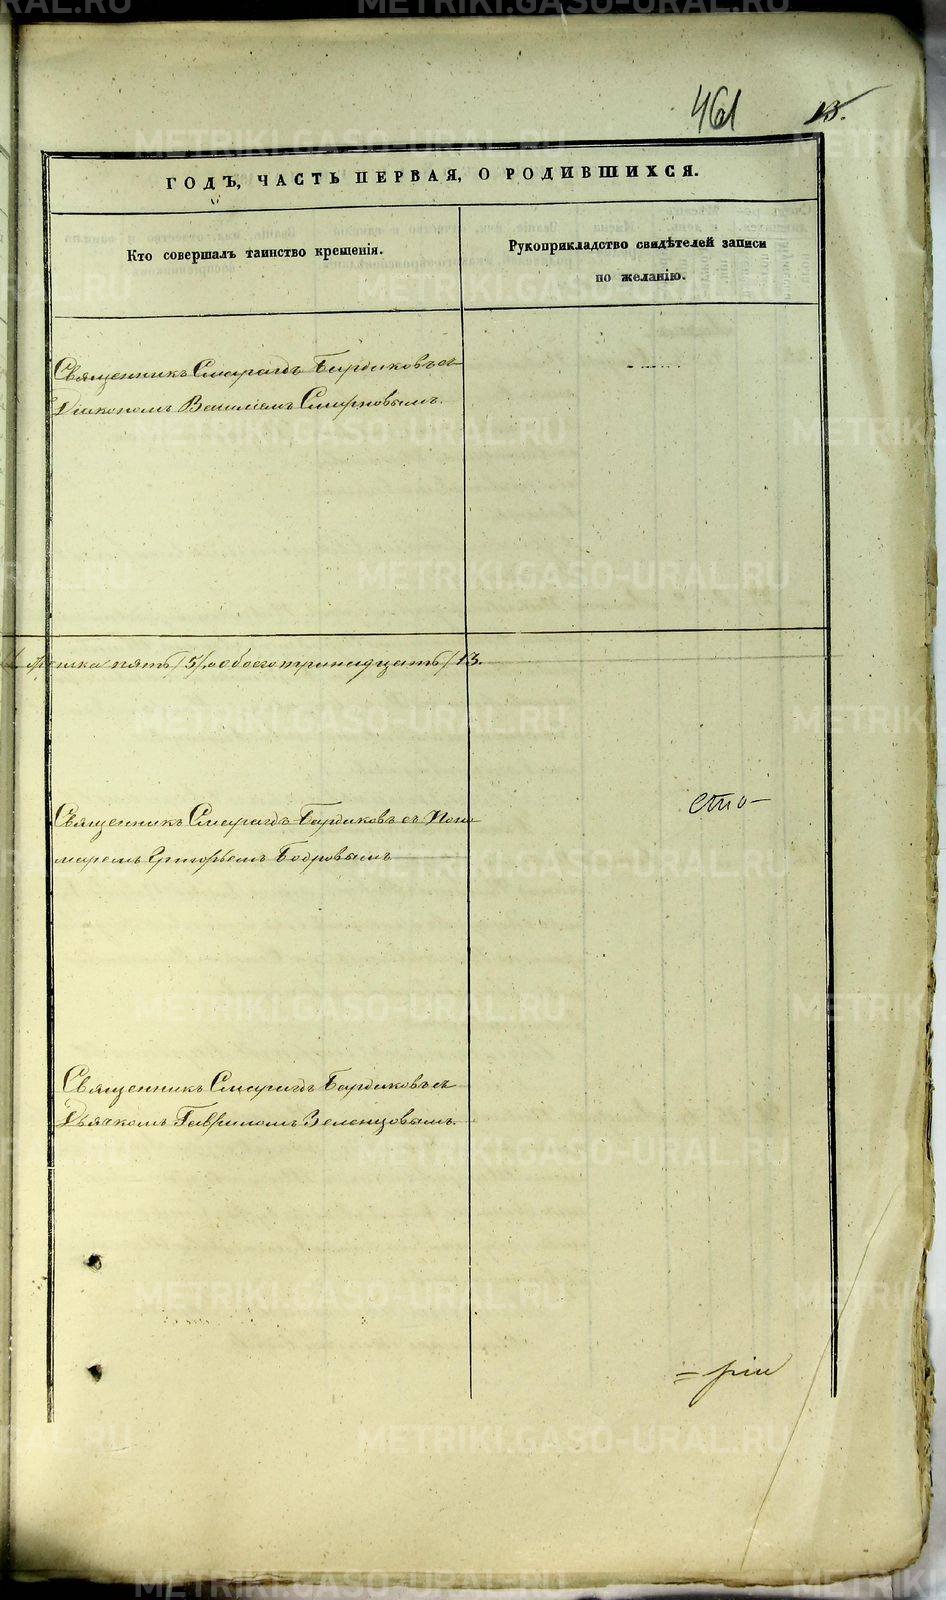 461 13.
ГОДЪ, ЧАСТЬ ПЕРВАЯ, О РОДИВШИХСЯ.
Кто совершалъ таинство крещенія.
Рукоприкладство свидѣтелей записи
по желанію.
Священникъ Смарагдъ Бирдиковъ съ
Діакономъ Василіемъ Смирновымъ.
женска пять /5/ а обоего тринадцать /13.
Священникъ Смарагдъ Бирдиковъ съ Поно
маремъ Григорьемъ Бобровымъ
сто-
Священникъ Смарагдъ Бирдиковъ съ
Дьячкомъ Гавриломъ Зеленцовымъ.
= ріи
METRIKI.GASO-URAL.RU